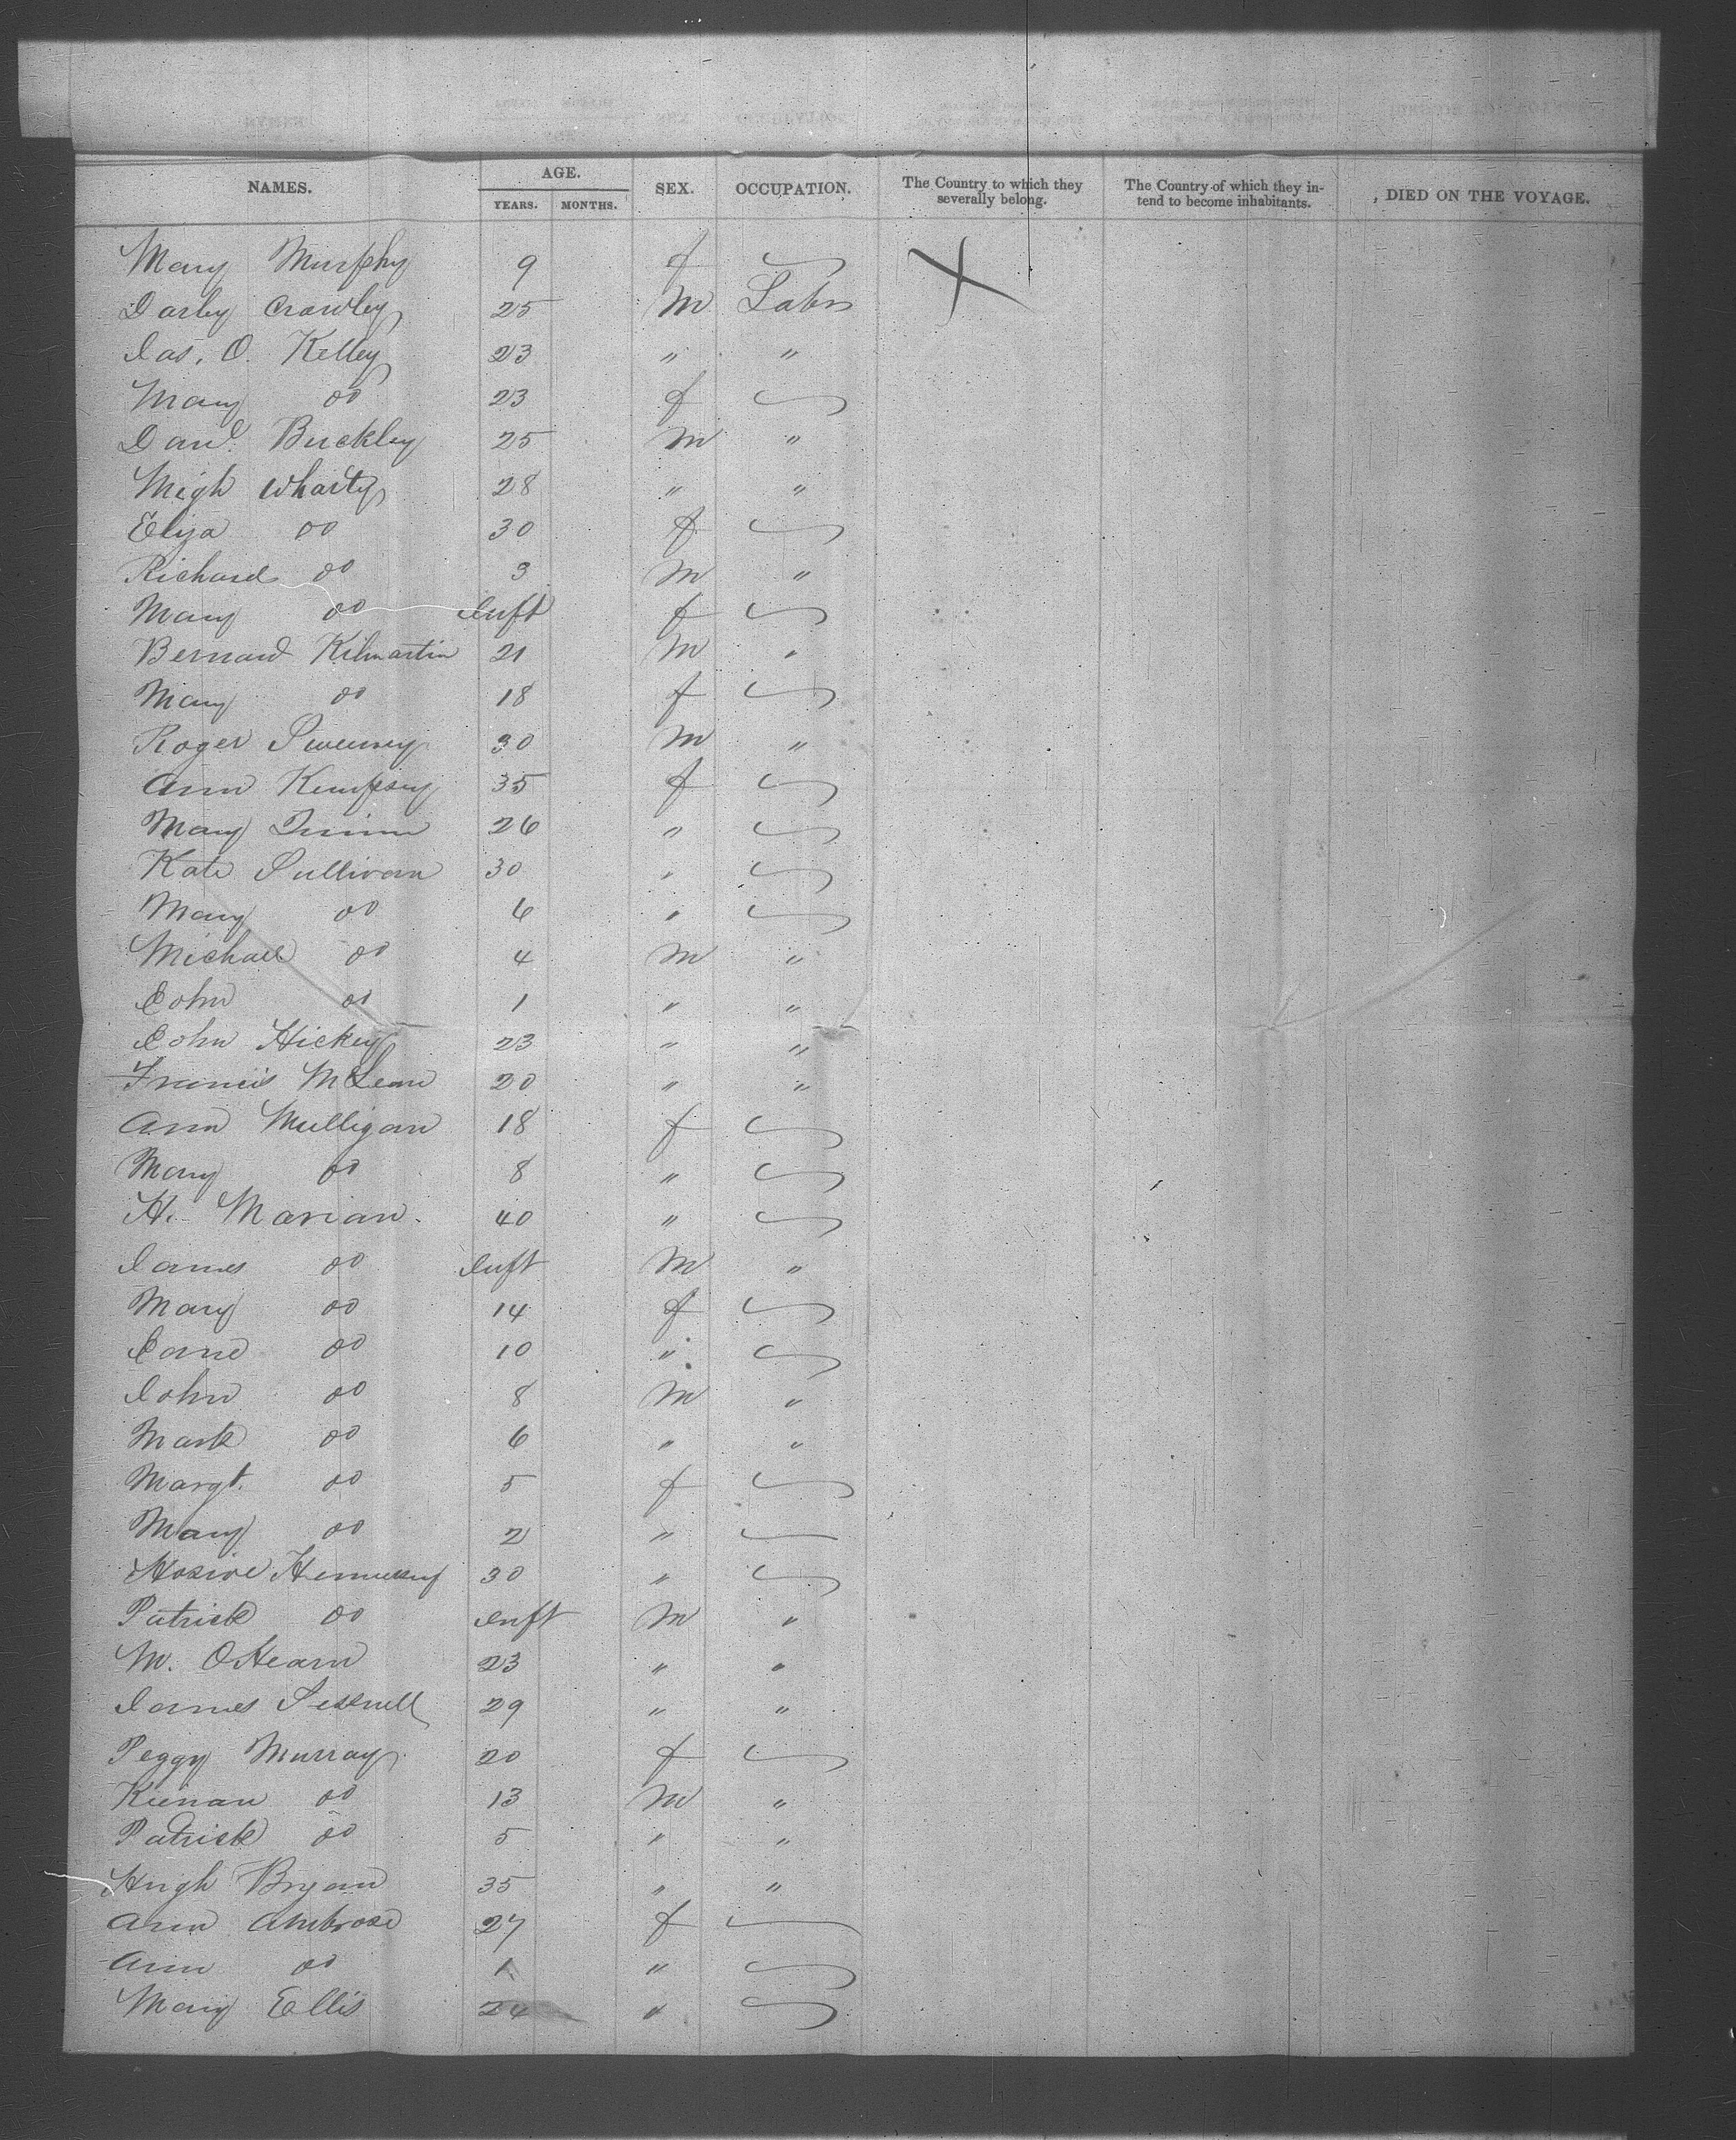 NAMES. AGE. SEX. OCCUPATION. The Country to which they severally belong. The Country of which they in- tend to become inhabitants. DIED ON THE VOYAGE.
YEARS. MONTHS.
Mary Murphy 9 f
Darby Crowley 25 M Labr
Jas. O. Kelley 23 " "
Mary do 23 f
Danl. Buckley 25 M "
Migh Wharty 28 " "
Eliza do 30 f
Richard do 3 M "
Mary do Inft f
Bernard Kilmartin 21 M "
Mary do 18 f
Roger Sweeney 30 M "
Ann Kempsey 35 f
Mary Quinn 26 "
Kate Sullivan 30 "
Mary do 6 "
Michael do 4 M "
John do 1 " "
John Hickey 23 " "
Francis McLean 20 " "
Ann Mulligan 18 f
Mary do 8 "
H. Marian. 40 "
James do Inft M "
Mary do 14 f
Jane do 10 "
John do 8 M "
Mark do 6 " "
Margt. do 5 f
Mary do 2 "
Hennessy 30 "
Patrick do Inft M "
M. OHearn 23 " "
James 29 " "
Peggy Murray 20 f
Kienan do 13 M "
Patrick do 5 " "
Hugh Bryan 35 " "
Ann Ambrose 27 f
Ann do 1 "
Mary Ellis 24 "